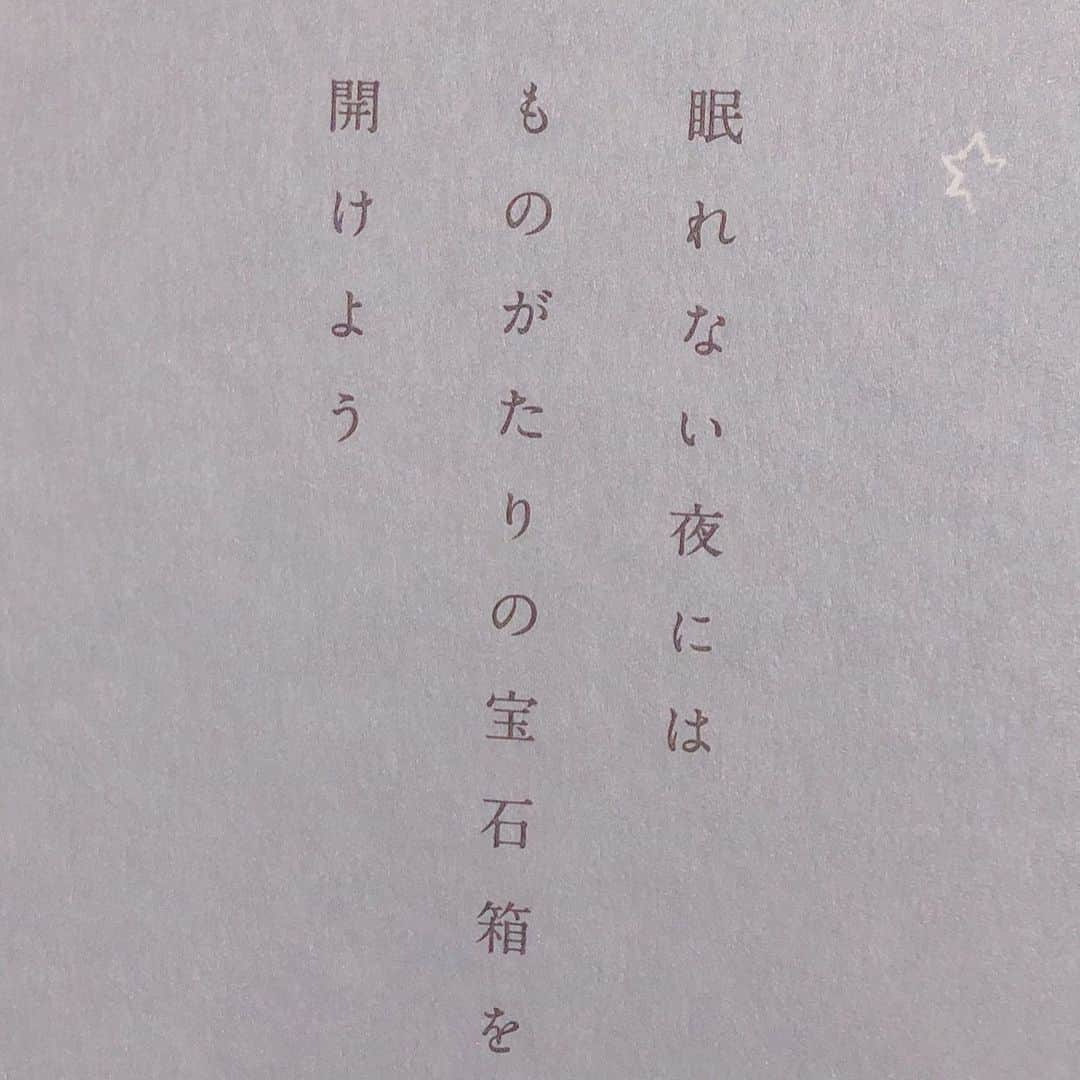 眠れない夜には
ものがたりの宝石箱を
開けよう